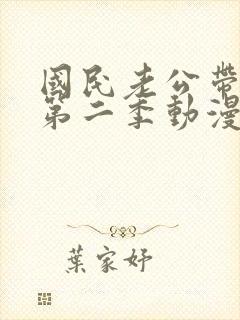 國民老公帶
第二季動漫
葉家妤